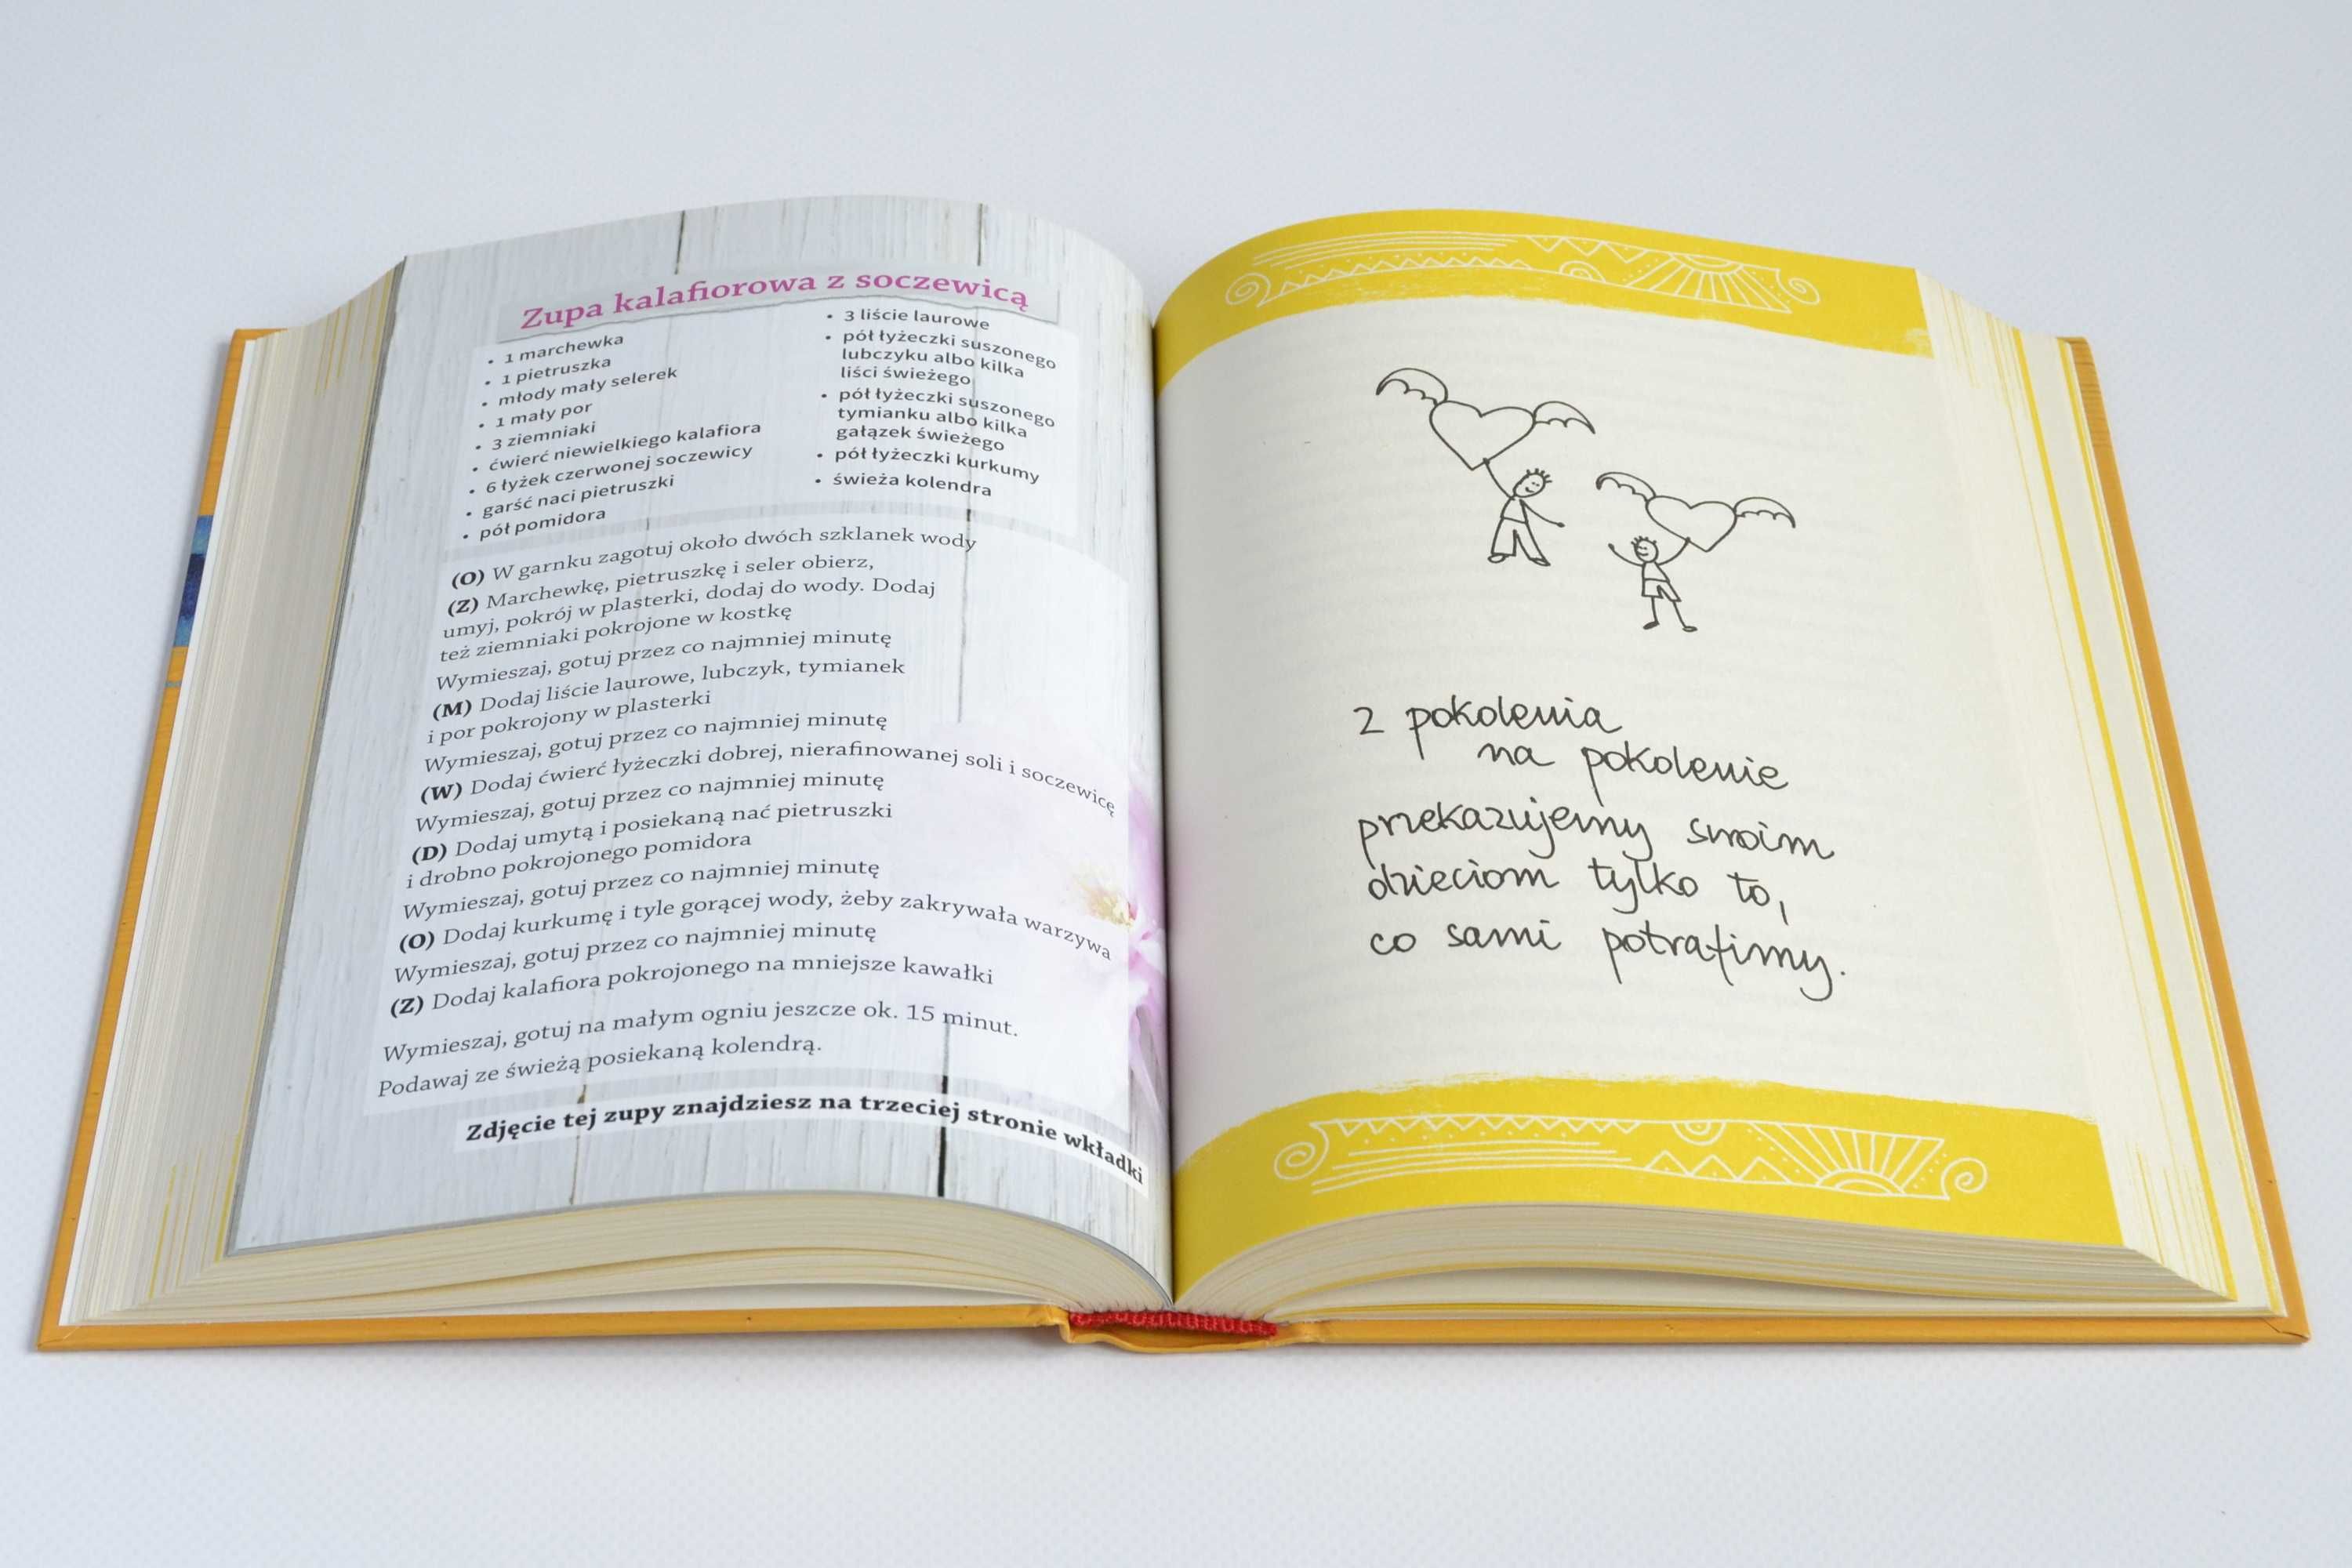 Zupa kalafiorowa z soczewicą
• 1 marchewka
• 1 pietruszka
• młody mały selerek
• 1 mały por
• 3 ziemniaki
• ćwierć niewielkiego kalafiora
• 6 łyżek czerwonej soczewicy
• garść naci pietruszki
• pół pomidora
• 3 liście laurowe
• pół łyżeczki suszonego
lubczyku albo kilka
liści świeżego
• pół łyżeczki suszonego
tymianku albo kilka
gałązek świeżego
• pół łyżeczki kurkumy
• świeża kolendra
(O) W garnku zagotuj około dwóch szklanek wody
(Z) Marchewkę, pietruszkę i seler obierz,
umyj, pokrój w plasterki, dodaj do wody. Dodaj
też ziemniaki pokrojone w kostkę
Wymieszaj, gotuj przez co najmniej minutę
(M) Dodaj liście laurowe, lubczyk, tymianek
i por pokrojony w plasterki
Wymieszaj, gotuj przez co najmniej minutę
(W) Dodaj ćwierć łyżeczki dobrej, nierafinowanej soli i soczewicę
Wymieszaj, gotuj przez co najmniej minutę
(D) Dodaj umytą i posiekaną nać pietruszki
i drobno pokrojonego pomidora
Wymieszaj, gotuj przez co najmniej minutę
(O) Dodaj kurkumę i tyle gorącej wody, żeby zakrywała warzywa
Wymieszaj, gotuj przez co najmniej minutę
(Z) Dodaj kalafiora pokrojonego na mniejsze kawałki
Wymieszaj, gotuj na małym ogniu jeszcze ok. 15 minut.
Podawaj ze świeżą posiekaną kolendrą.
Zdjęcie tej zupy znajdziesz na trzeciej stronie wkładki
z pokolenia
na pokolenie
przekazujemy swoim
dzieciom tylko to,
co sami potrafimy.